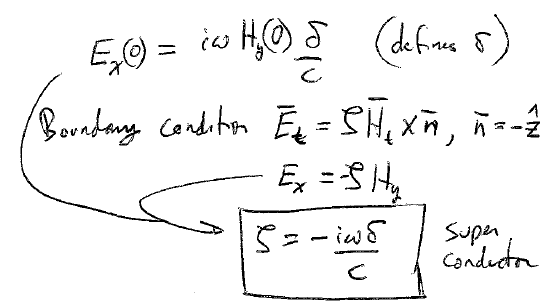 E_x(0) = iω H_y(0) δ/c (defines δ)
Boundary condition Ē_t = ζ H̄_t × n̄, n̄ = -ẑ
E_x = -ζ H_y
ζ = - iωδ/c Super conductor